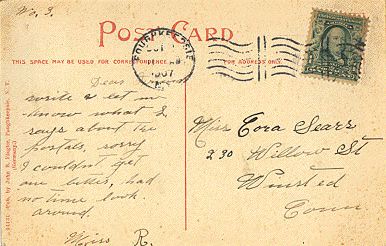 No. 3.
POST CARD
THIS SPACE MAY BE USED FOR CORRESPONDENCE
FOR ADDRESS ONLY.
POUGHKEEPSIE
1907
N.Y.
Dear
write & let me
know what I
says about the
postals, sorry
I couldn't get
one better, had
no time look
around.
Miss R.
Miss Cora Sears
230 Willow St
Winsted
Conn
Pub. by John R. Ringler, Poughkeepsie, N. Y.
(Germany.)